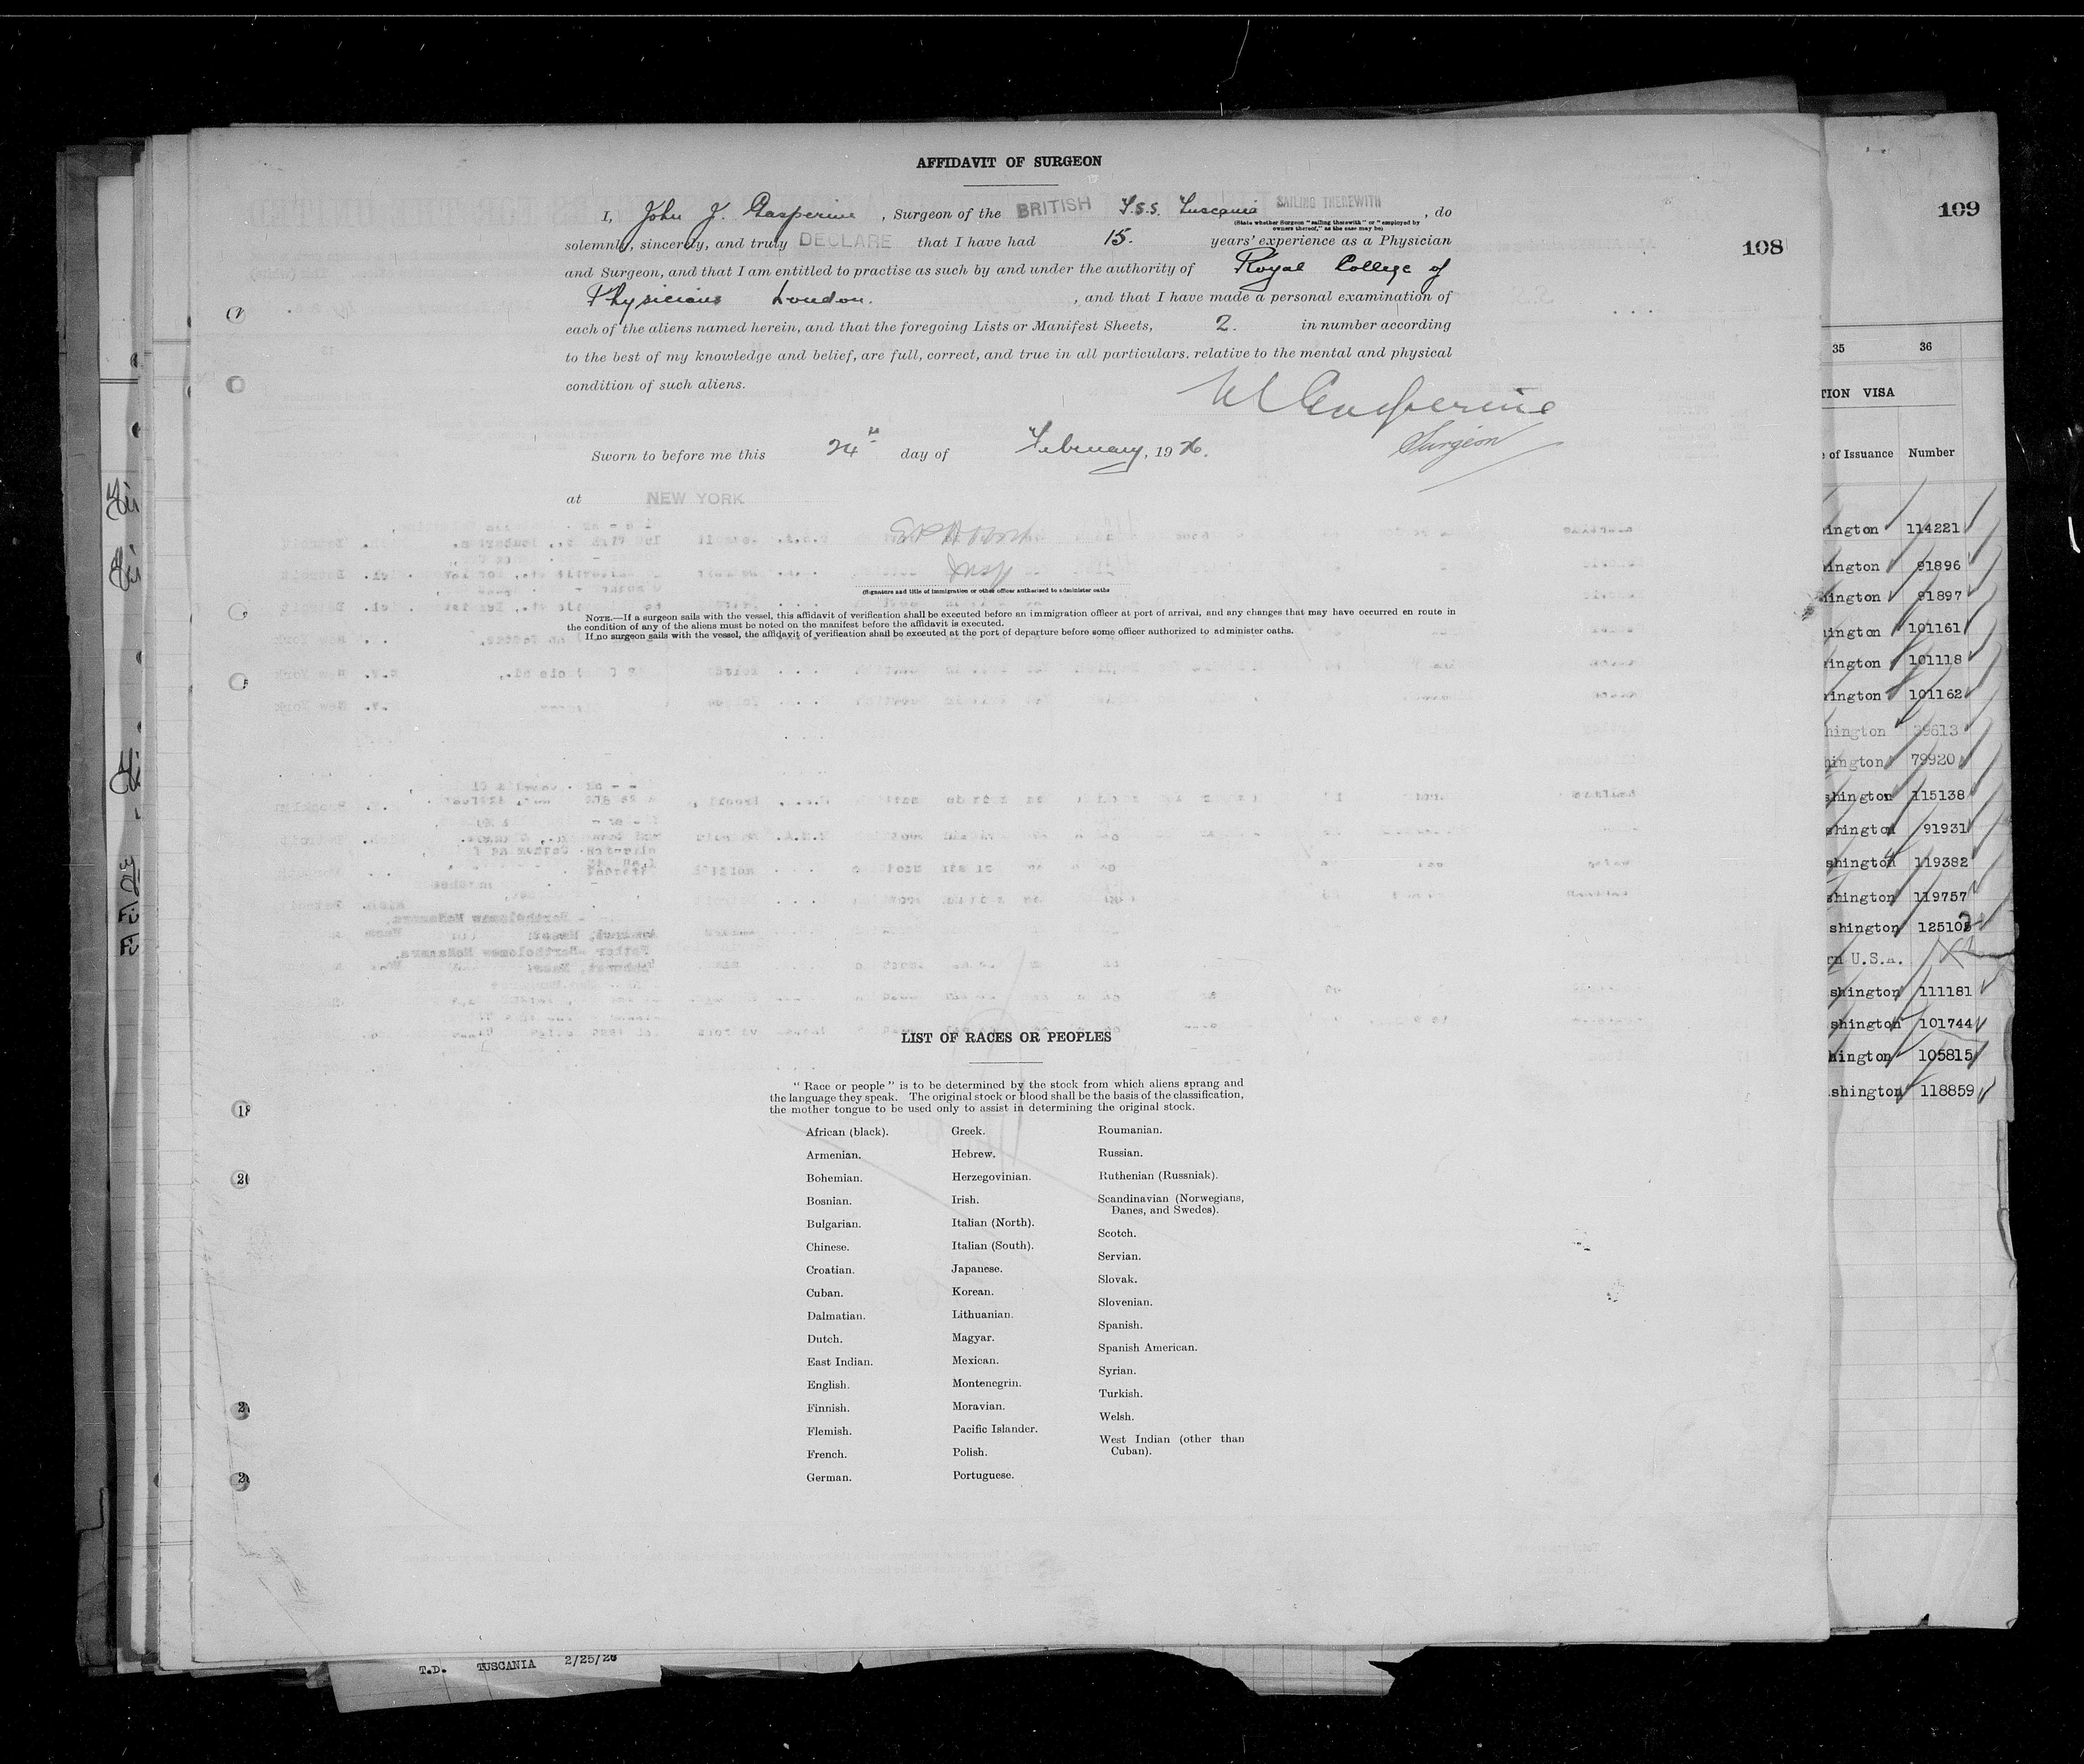 AFFIDAVIT OF SURGEON
I, John J. Gasperine, Surgeon of the BRITISH T.S.S. Tuscania SAILING THEREWITH, do
(State whether Surgeon "sailing therewith" or "employed by
owners thereof," as the case may be)
solemnly, sincerely, and truly DECLARE that I have had 15. years' experience as a Physician
and Surgeon, and that I am entitled to practise as such by and under the authority of Royal College of
Physicians London. , and that I have made a personal examination of
each of the aliens named herein, and that the foregoing Lists or Manifest Sheets, 2. in number according
to the best of my knowledge and belief, are full, correct, and true in all particulars, relative to the mental and physical
condition of such aliens.
Gasperine
Surgeon
Sworn to before me this 24th day of February, 1926.
at NEW YORK
Insp
(Signature and title of immigration or other officer authorized to administer oaths
NOTE.—If a surgeon sails with the vessel, this affidavit of verification shall be executed before an immigration officer at port of arrival, and any changes that may have occurred en route in
the condition of any of the aliens must be noted on the manifest before the affidavit is executed.
If no surgeon sails with the vessel, the affidavit of verification shall be executed at the port of departure before some officer authorized to administer oaths.
LIST OF RACES OR PEOPLES
"Race or people" is to be determined by the stock from which aliens sprang and
the language they speak. The original stock or blood shall be the basis of the classification,
the mother tongue to be used only to assist in determining the original stock.
African (black).
Armenian.
Bohemian.
Bosnian.
Bulgarian.
Chinese.
Croatian.
Cuban.
Dalmatian.
Dutch.
East Indian.
English.
Finnish.
Flemish.
French.
German.
Greek.
Hebrew.
Herzegovinian.
Irish.
Italian (North).
Italian (South).
Japanese.
Korean.
Lithuanian.
Magyar.
Mexican.
Montenegrin.
Moravian.
Pacific Islander.
Polish.
Portuguese.
Roumanian.
Russian.
Ruthenian (Russniak).
Scandinavian (Norwegians,
Danes, and Swedes).
Scotch.
Servian.
Slovak.
Slovenian.
Spanish.
Spanish American.
Syrian.
Turkish.
Welsh.
West Indian (other than
Cuban).
108
109
35 36
TION VISA
of Issuance Number
ington 114221
ington 91896
ington 91897
ington 101161
ington 101118
ington 101162
hington 39613
hington 79920
shington 115138
shington 91931
shington 119382
shington 119757
shington 125102
rn U.S.A.
shington 111181
shington 101744
hington 105815
shington 118859
T.D. TUSCANIA 2/25/26